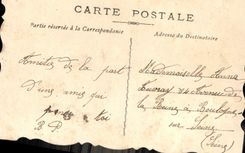 CARTE POSTALE
Partie réservée à la Correspondance
Adresse du Destinataire
Amitiés de la part
d'une amie qui
pense à toi
B P
Mademoiselle
Avenue de
la Reine à Boulogne
sur Seine
(Seine)